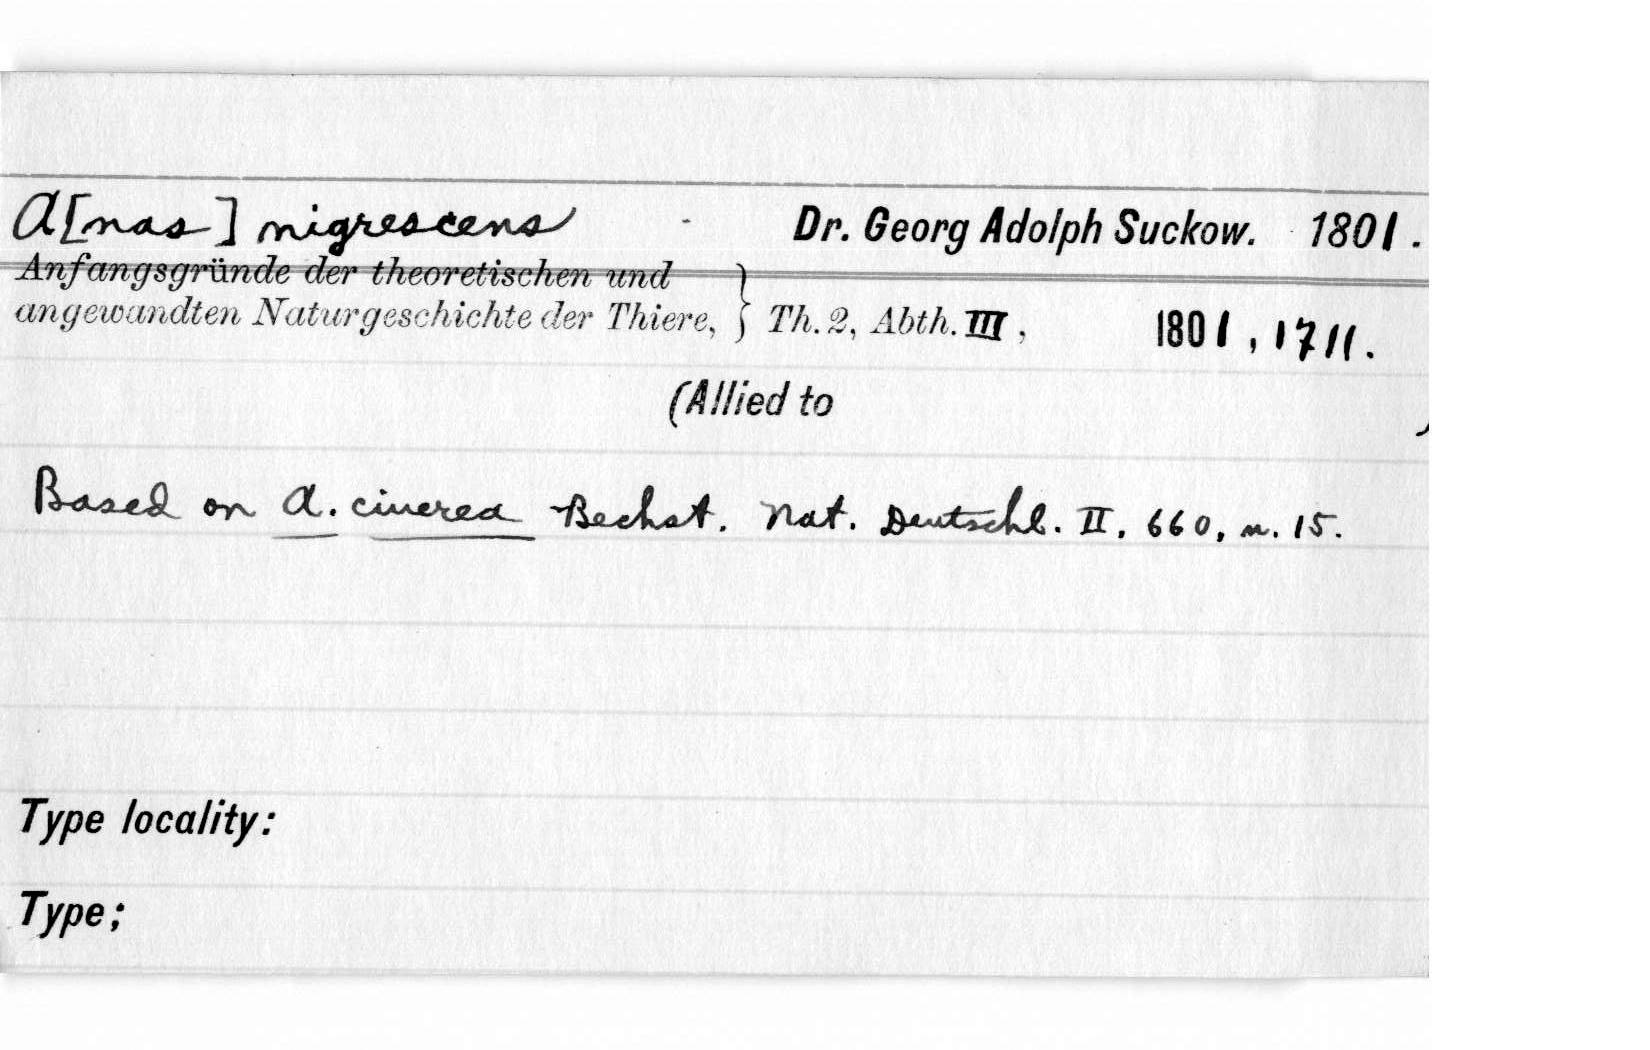 A[nas] nigrescens - Dr. Georg Adolph Suckow. 1801.
Anfangsgründe der theoretischen und
angewandten Naturgeschichte der Thiere, } Th. 2, Abth. III, 1801, 1711.
(Allied to )
Based on A. cinerea Bechst. Nat. Deutschl. II. 660, n. 15.
Type locality:
Type;